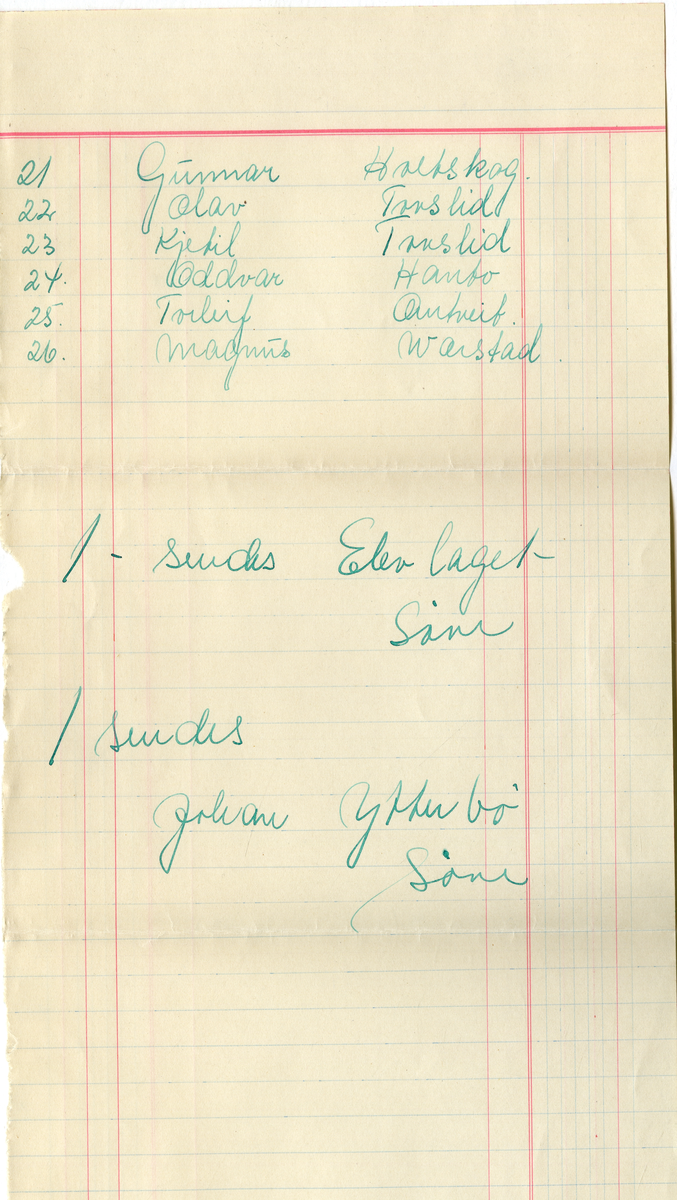 21 Gunnar Hvetskog.
22 Olav Trovslid
23 Kjetil Trovslid
24. Oddvar Hantо
25. Torleif Omtveit.
26. Magnus Wærstad.
/- sendes Elevlaget
Söve
/ sendes
Johan Ytterbö
Söve